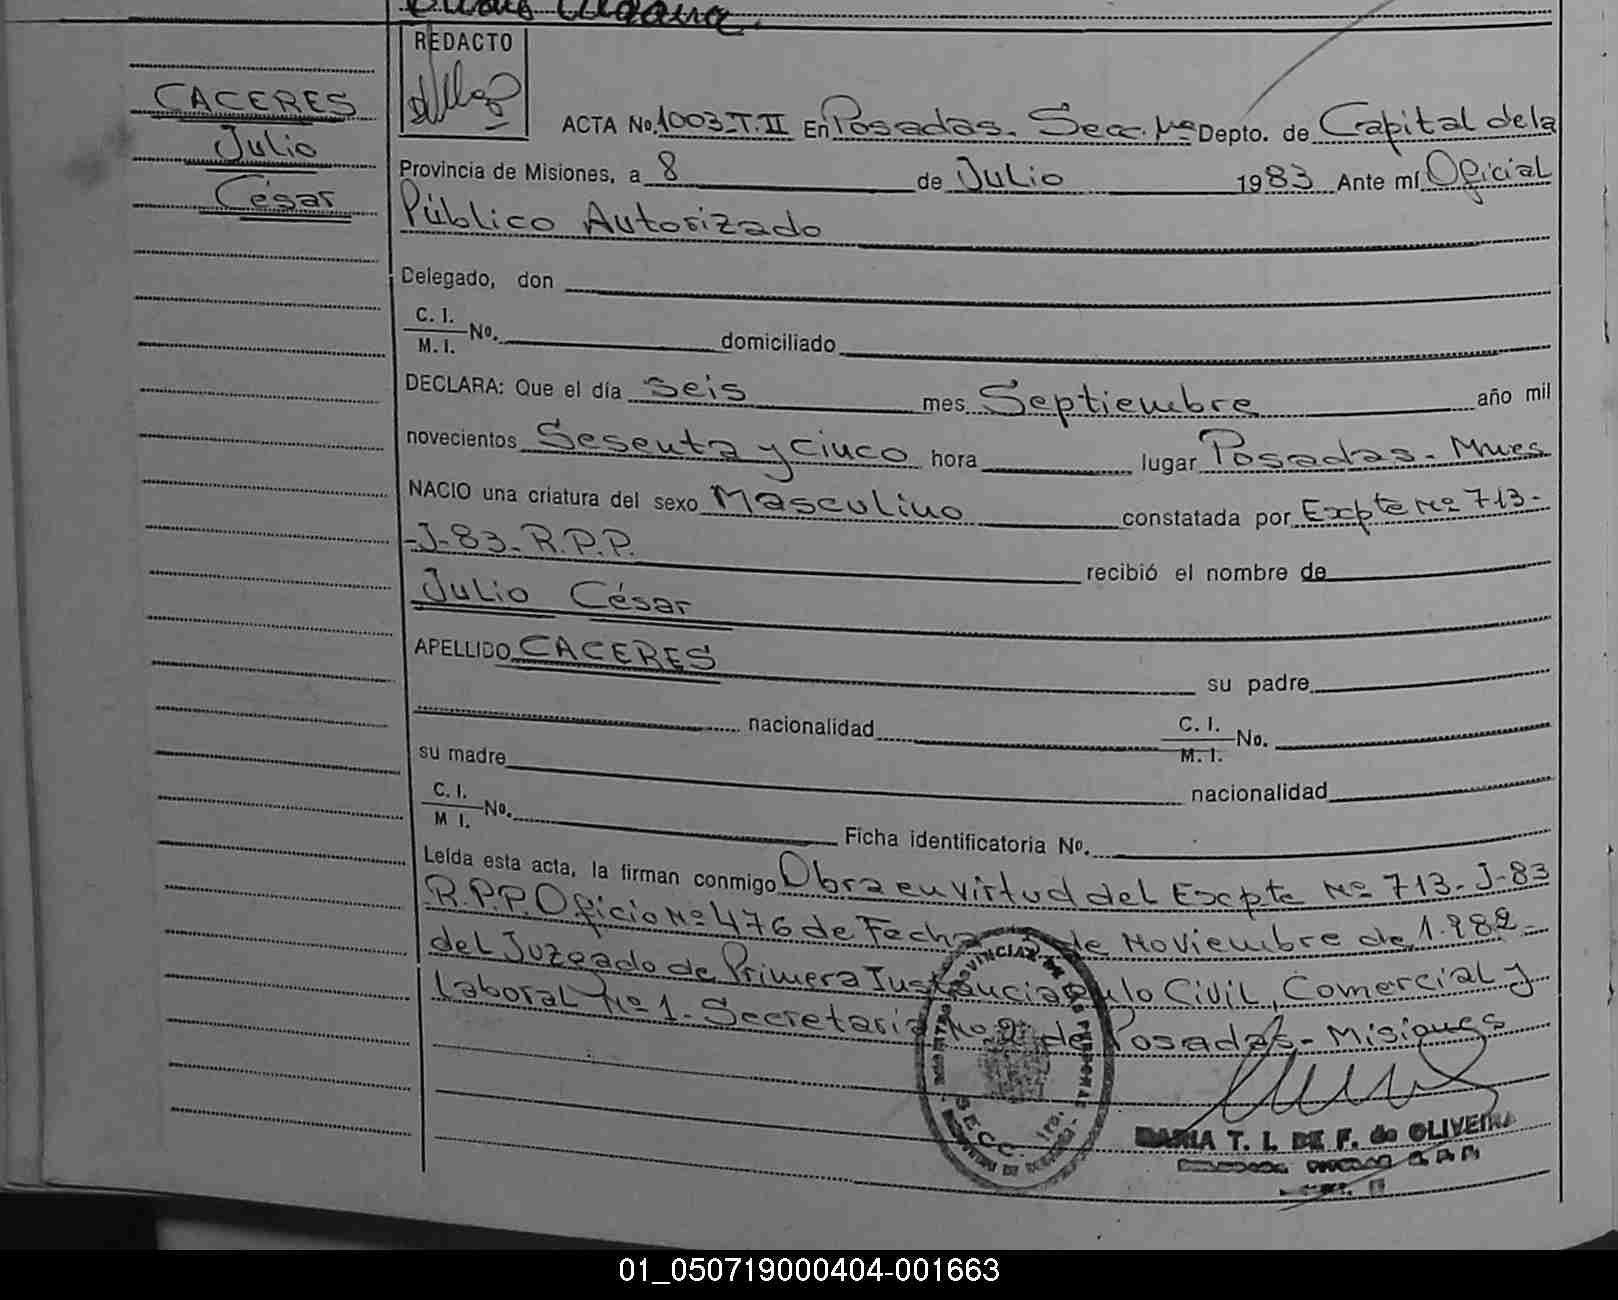 REDACTO
CACERES
Julio
César
ACTA No. 1003-T.II En Posadas. Secc. 1ª Depto. de Capital de la
Provincia de Misiones, a 8 de Julio 1983 Ante mí Oficial
Público Autorizado
Delegado, don
C. I.
M. I. No. domiciliado
DECLARA: Que el día seis mes Septiembre año mil
novecientos Sesenta y Cinco hora lugar Posadas. Mnes
NACIO una criatura del sexo Masculino constatada por Expte Nº 713-
-J-83- R.P.P. recibió el nombre de
Julio César
APELLIDO CACERES su padre
nacionalidad C. I.
M. I. No.
su madre nacionalidad
C. I.
M I. No. Ficha identificatoria No.
Leída esta acta, la firman conmigo Obra en virtud del Expte Nº 713-J-83
R.P.P. Oficio Nº 476 de Fecha de Noviembre de 1.982-
del Juzgado de Primera Instancia en lo Civil, Comercial y
Laboral Nº 1. Secretaria Nº 2 de Posadas- Misiones
PROVINCIAL DE
SECC. 1ra.
MARIA T. I. DE F. de OLIVEIRA
01_050719000404-001663